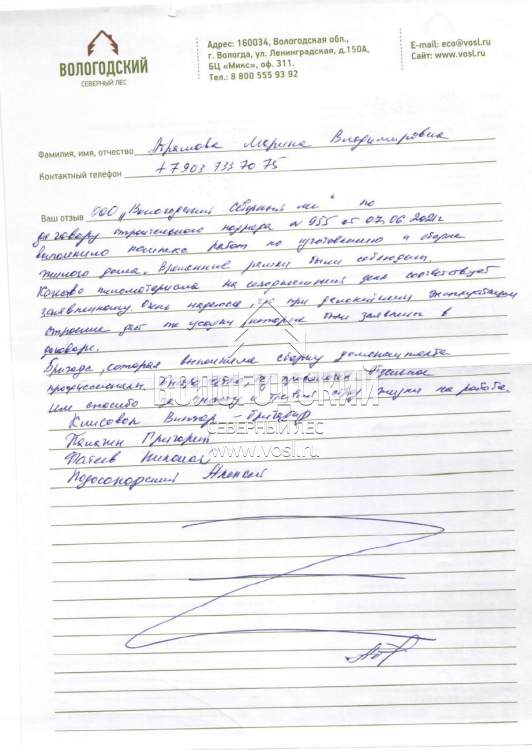 ВОЛОГОДСКИЙ
СЕВЕРНЫЙ ЛЕС
Адрес: 160034, Вологодская обл.,
г. Вологда, ул. Ленинградская, д.150А,
БЦ «Микс», оф. 311.
Тел.: 8 800 555 93 92
E-mail: eco@vosl.ru
Сайт: www.vosl.ru
Фамилия, имя, отчество Абрамова Марина Владимировна
Контактный телефон +7903 733 70 75
Ваш отзыв ООО „Вологодский Северный лес" по
договору строительного подряда № 955 от 07.06.2021г
выполнило комплекс работ по изготовлению и сборке
жилого дома. Временные рамки были соблюдены.
Качество пиломатериала на сегодняшний день соответствует
заявленному. Очень надеюсь что при дальнейшей эксплуатации
строение даст ту усадку которые были заявлены в
договоре.
Бригада, которая выполняла сборку домокомплекта
профессионалы
Им спасибо на работе.
Виктор - бригадир
Григорий
Фатеев Николай
Алексей
ВОЛОГОДСКИЙ
СЕВЕРНЫЙ ЛЕС
www.vosl.ru